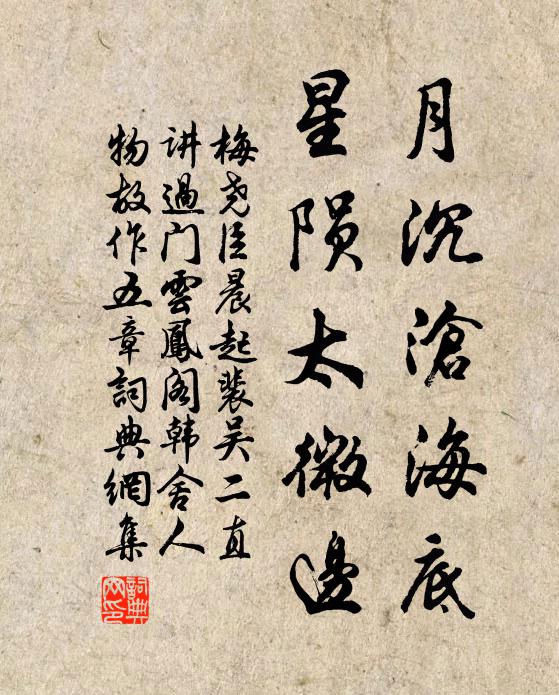 月沉滄海底
星陨太微邊
梅尧臣晨起裴吴二直
讲過门雲鳳阁韩舍人
物故作五章詞典網集
詞典網印